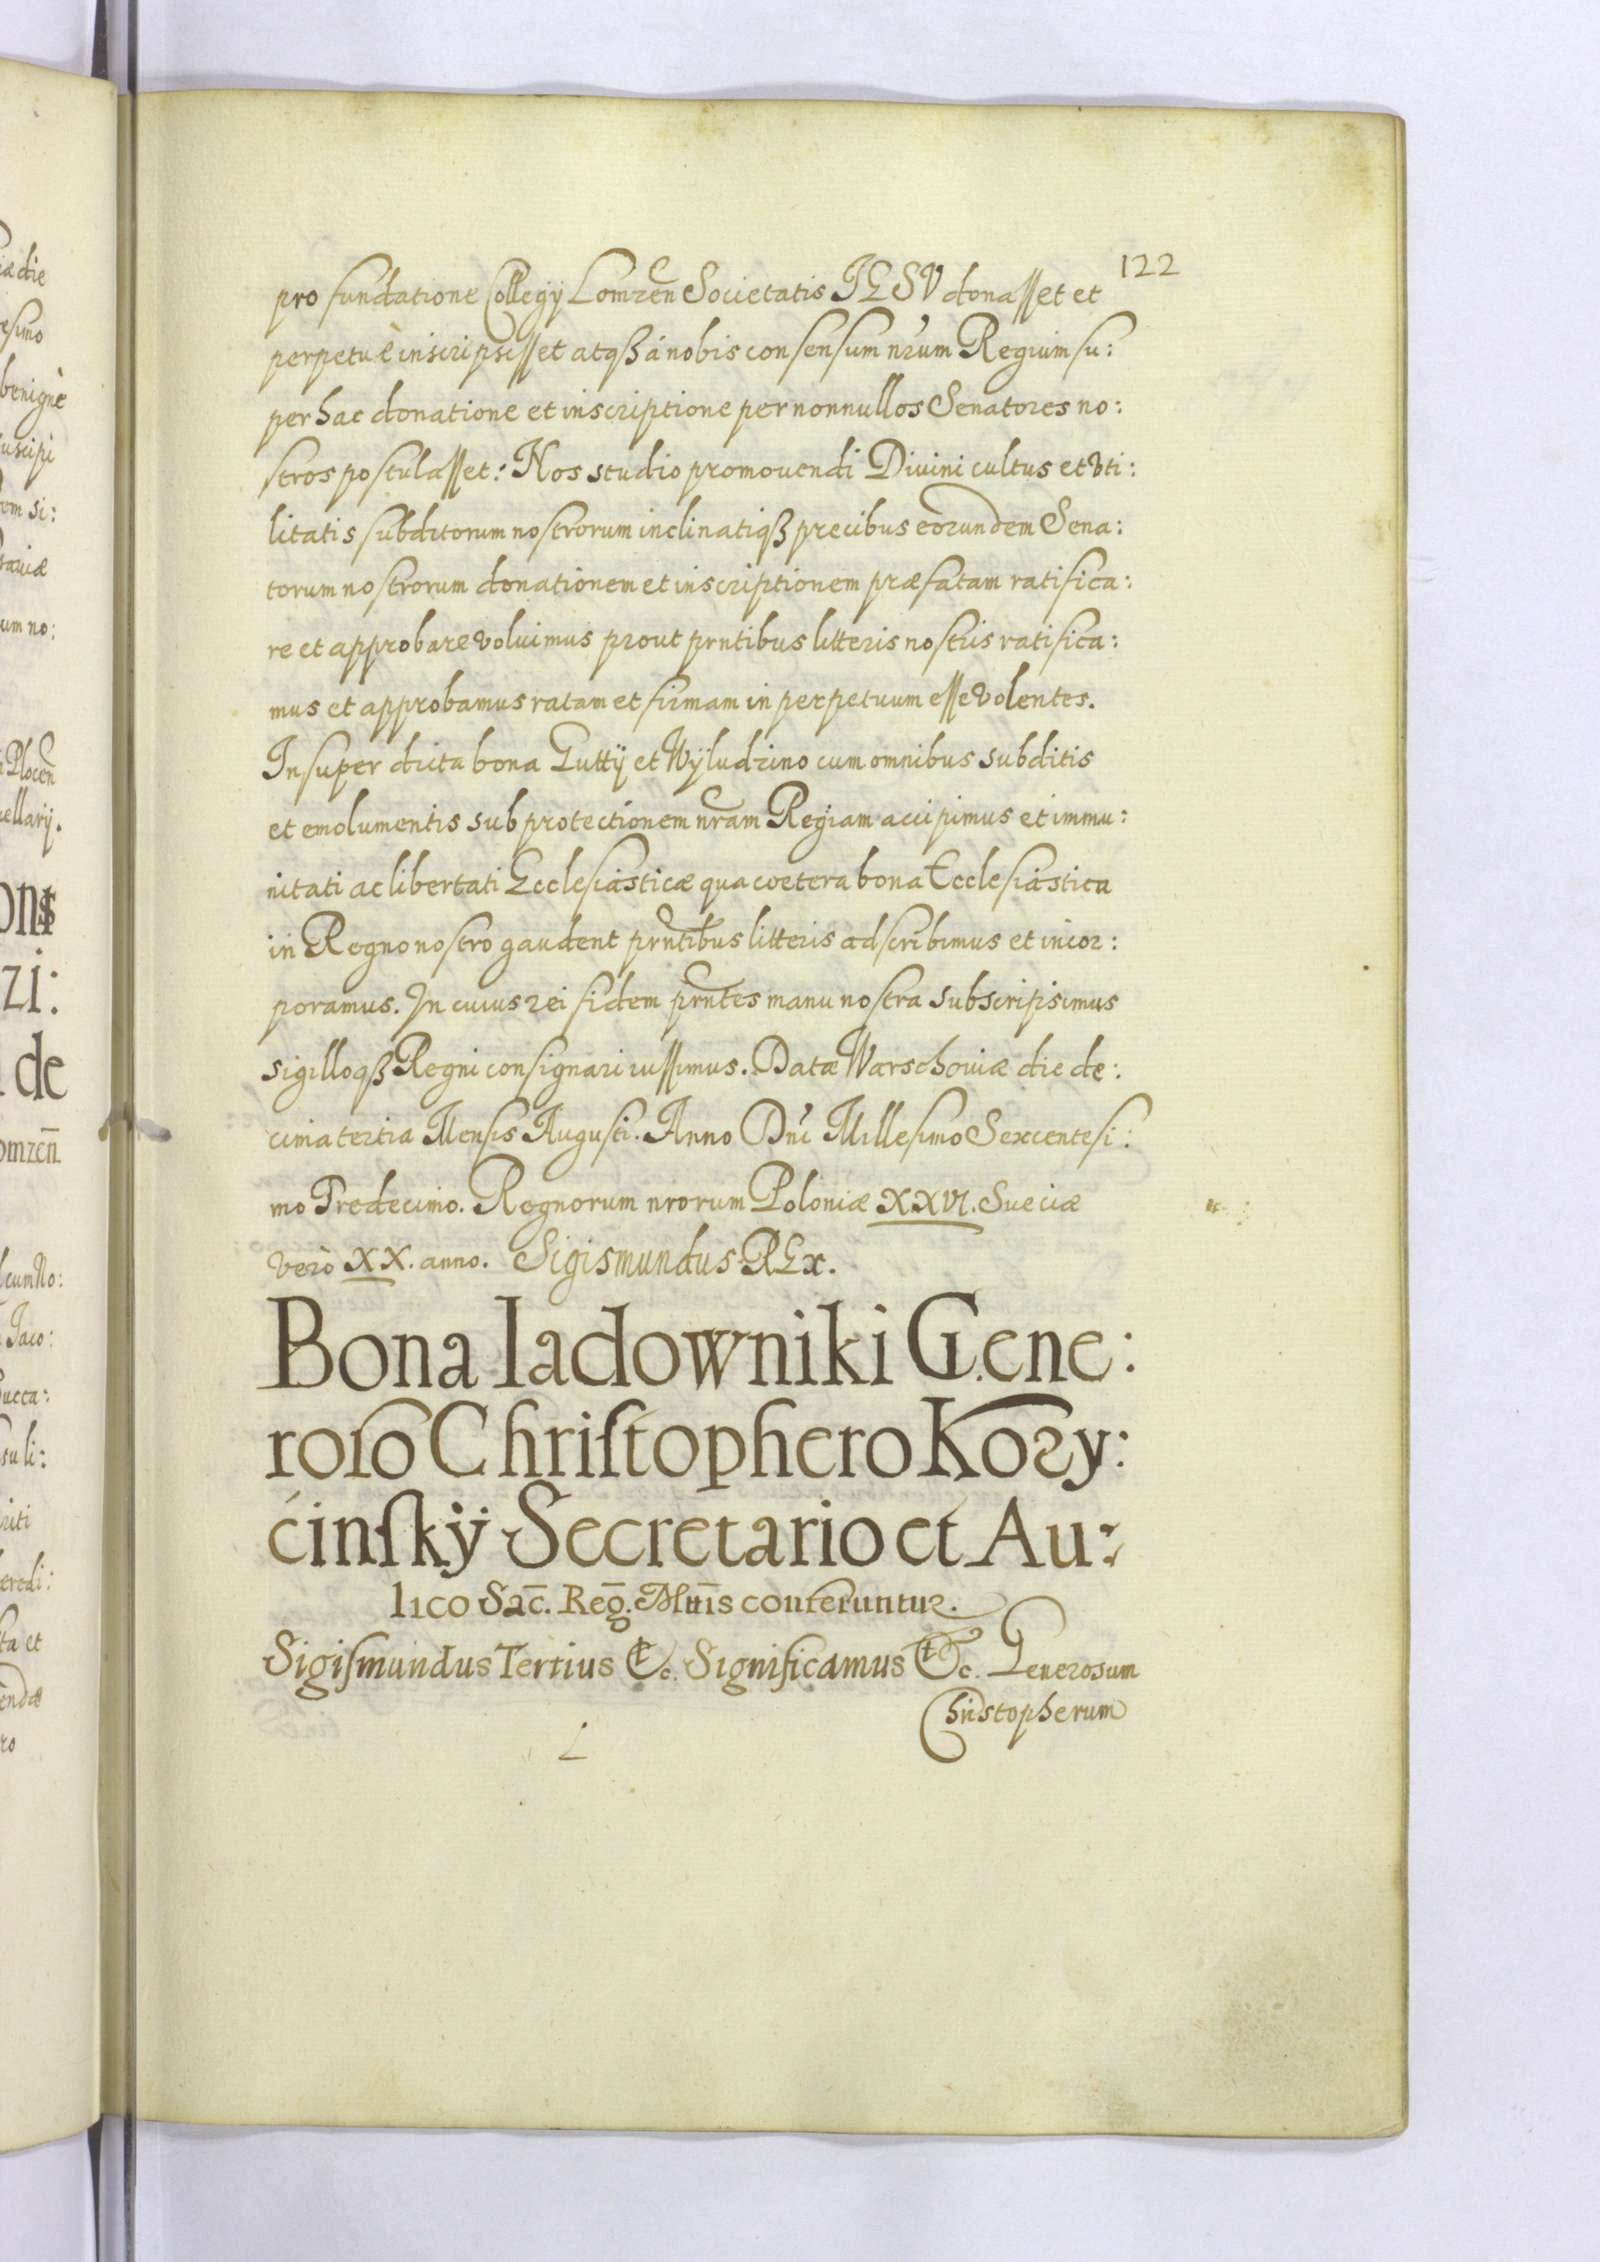 122
pro fundatione Collegij Lomzen̄ Societatis IESV donasset et
perpetuè inscripsisset atqꝫ á nobis consensum nr̃um Regium su:
per hac donatione et inscriptione per nonnullos Senatores no:
stros postulasset: Nos studio promouendi Diuini cultus et vti:
litatis subditorum nostrorum inclinatiqꝫ precibus eorundem Sena:
torum nostrorum donationem et inscriptionem præfatam ratifica:
re et approbare voluimus prout prntibus litteris nostris ratifica:
mus et approbamus ratam et firmam in perpetuum esse volentes.
Insuper dicta bona Guttÿ et Wÿludzino cum omnibus subditis
et emolumentis sub protectionem nr̃am Regiam accipimus et immu:
nitati ac libertati Ecclesiasticæ qua coetera bona Ecclesiastica
in Regno nostro gaudent prn̄tibus litteris adscribimus et incor:
poramus. In cuius rei fidem prn̄tes manu nostra subscripsimus
sigilloqꝫ Regni consignari iussimus. Datæ Warschouiæ die de:
cima tertia Mensis Augusti. Anno Dn̄i Millesimo Sexcentesi:
mo Tredecimo. Regnorum nrorum Poloniæ XXVI. Sueciæ
verò XX. anno. Sigismundus REx.
Bona Iadowniki Gene:
roso Christophero Kozy:
ćinskÿ Secretario et Au:
lico Sac̄. Reḡ. Mttīs conferuntur.
Sigismundus Tertius &c. Significamus &c. Generosum
Christopherum
L
iæ die
esimo
benignè
suscipi
rem si:
um no:
Plocen̄
cellarij.
zi:
de
omzen̄
cum No:
Iaco:
su li:
eredi:
ta et
endæ
ro